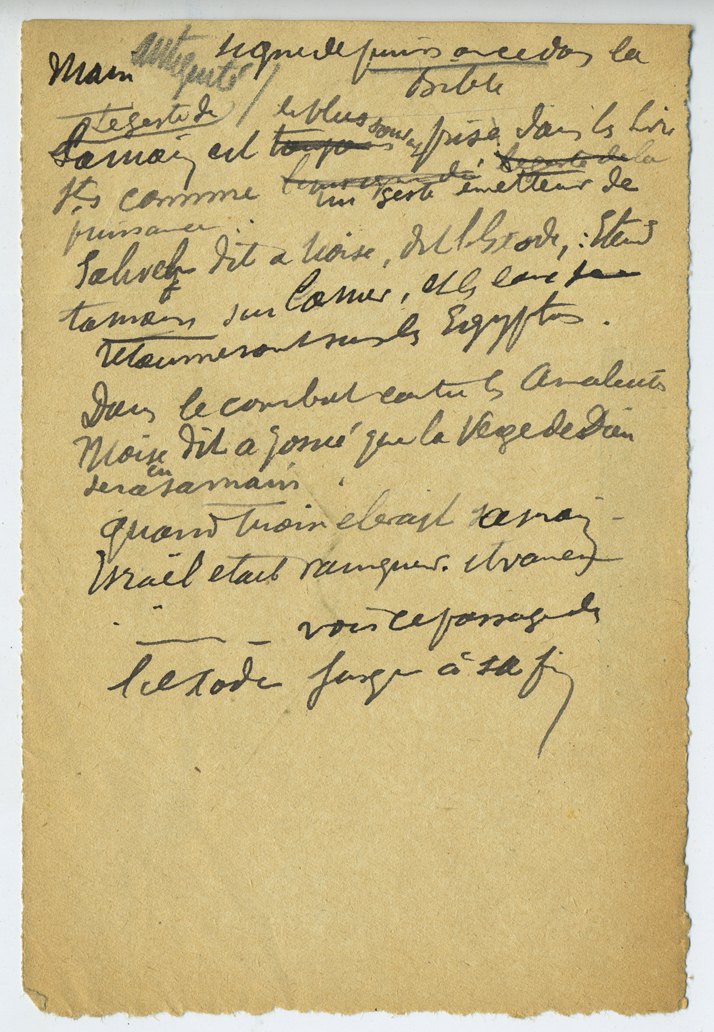 Main antiquité / signe de puissance dans la
Bible
Le geste de le plus souvent
La main est toujours prise dans les livres
Sts comme le geste de la
un geste émetteur de
puissance :
Jahveh dit à Moïse, dit l'Exode, : Etend
ta main sur la mer, et les eaux
retourneront sur les Egyptiens.
Dans le combat contre les Amalécites
Moïse dit à Josué que la Verge de Dieu
sera en sa main.
quand Moïse élevait sa main
Israël était vainqueur. et vaincu
" — — voir ce passage de
l'exode jusqu'à sa fin